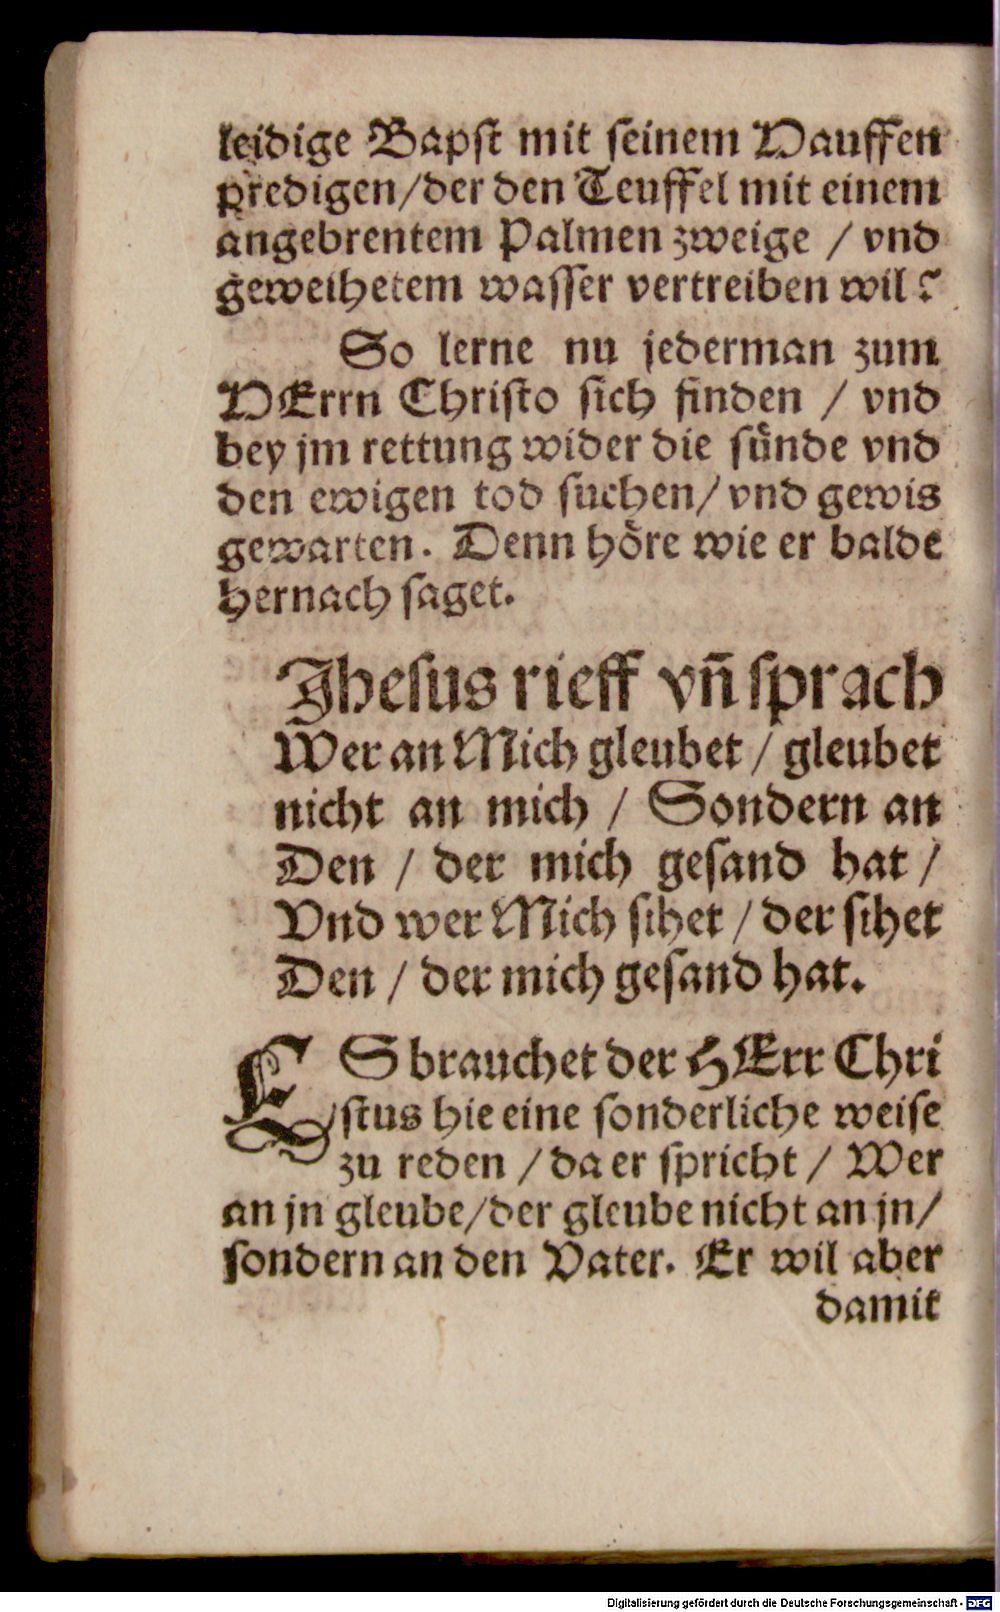 leidige Bapſt mit ſeinem Hauffen
predigen/der den Teuffel mit einem
angebrentem Palmen zweige / vnd
geweihetem waſſer vertreiben wil?
So lerne nu jederman zum
HErrn Chriſto ſich finden / vnd
bey jm rettung wider die ſuͤnde vnd
den ewigen tod ſuchen/ vnd gewis
gewarten. Denn hoͤre wie er balde
hernach ſaget.
Jheſus rieff vñ ſprach
Wer an Mich gleubet / gleubet
nicht an mich / Sondern an
Den / der mich geſand hat /
Vnd wer Mich ſihet / der ſihet
Den / der mich geſand hat.
ES brauchet der HErr Chri
ſtus hie eine ſonderliche weiſe
zu reden / da er ſpricht / Wer
an jn gleube/der gleube nicht an jn/
ſondern an den Vater. Er wil aber
damit
Digitalisierung gefördert durch die Deutsche Forschungsgemeinschaft - DFG